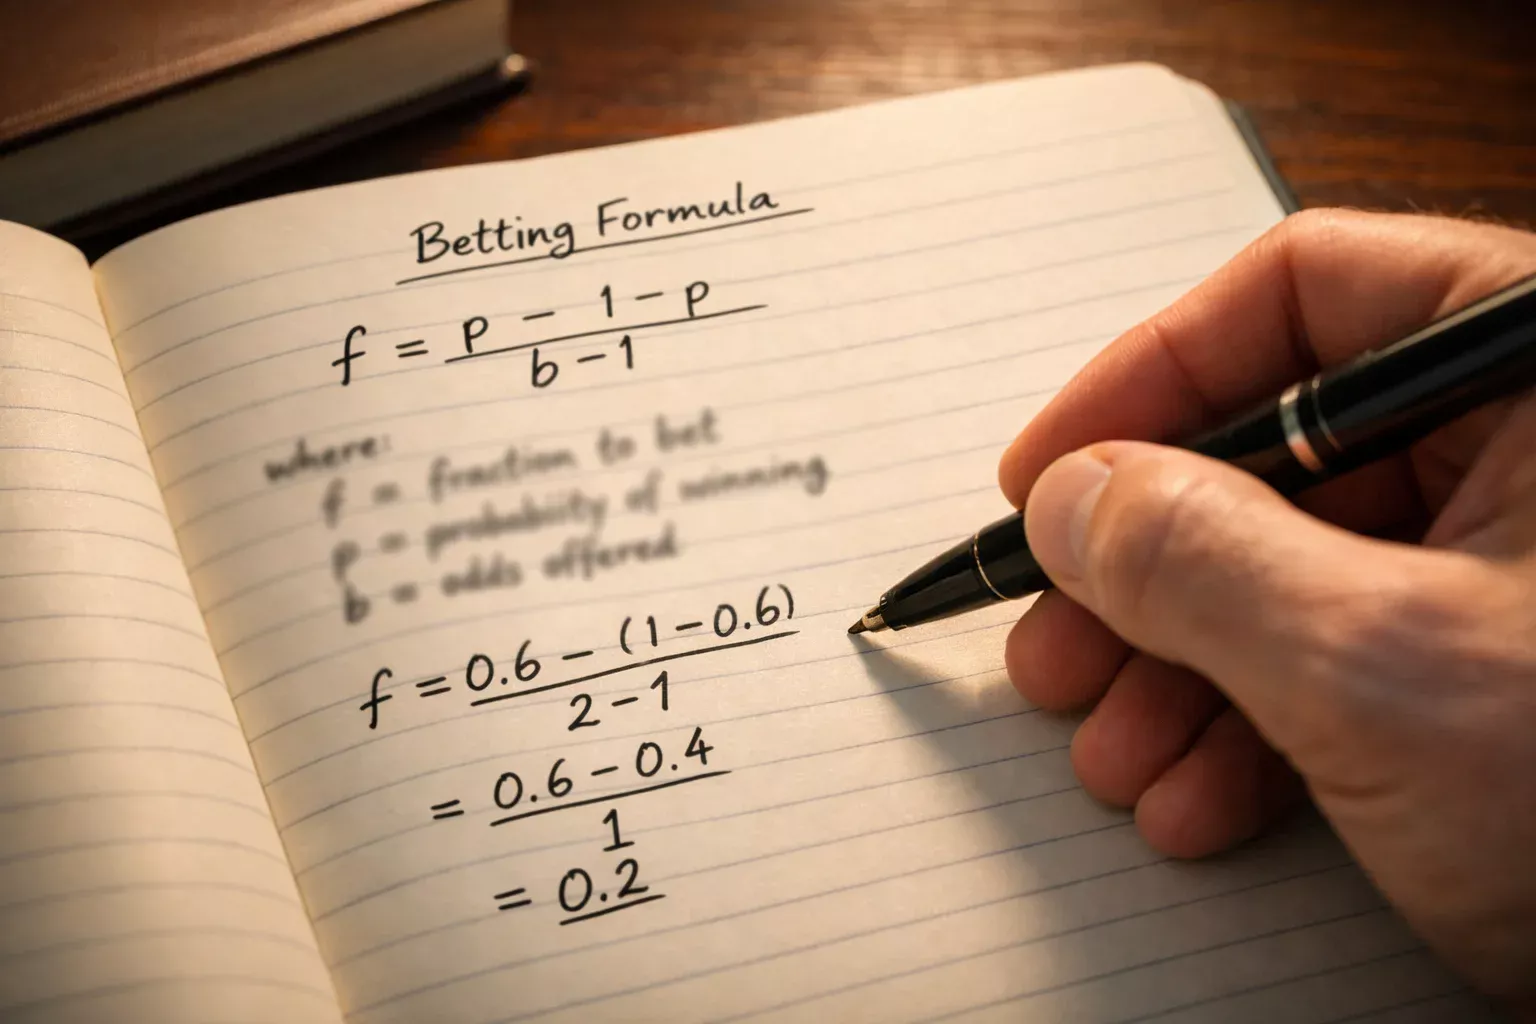 Betting Formula
f = p - 1 - p
b - 1
where:
f = fraction to bet
p = probabiity of winning
b = odds offered
f = 0.6 - (1 - 0.6)
2 - 1
= 0.6 - 0.4
1
= 0.2